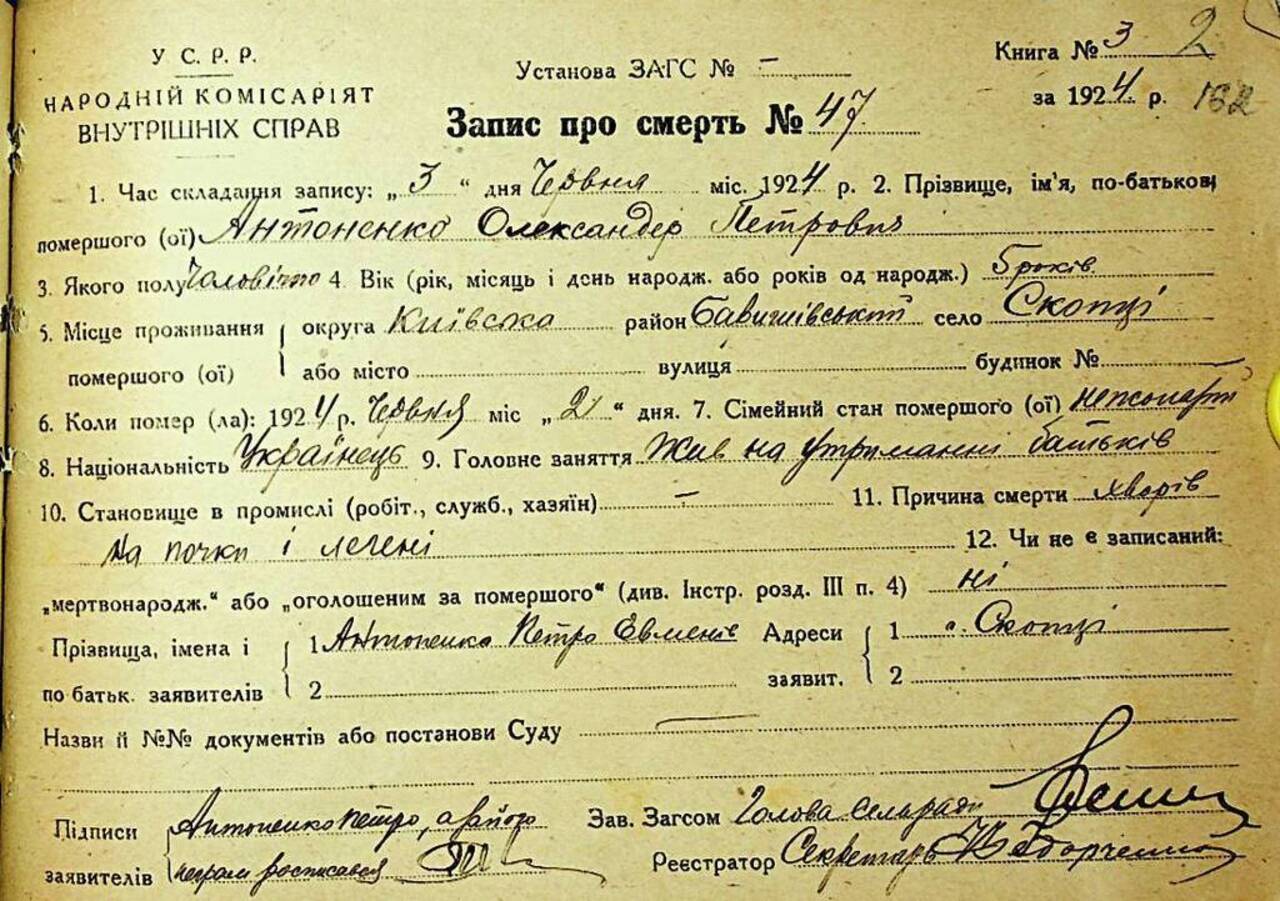 У С. Р. Р.
НАРОДНІЙ КОМІСАРІЯТ
ВНУТРІШНІХ СПРАВ
Установа ЗАГС № –
Книга № 3 2
за 1924 р. 162
Запис про смерть № 47
1. Час складання запису: „ 3 “ дня Червня міс. 1924 р. 2. Прізвище, ім'я, по-батькові
помершого (ої) Антоненко Олександер Петрович
3. Якого полу Чоловічо 4. Вік (рік, місяць і день народж. або років од народж.) 5 років
5. Місце проживання округа Київська район село Скопці
помершого (ої) або місто вулиця будинок №
6. Коли помер (ла): 1924 р. Червня міс „ 2 “ дня. 7. Сімейний стан помершого (ої)
8. Національність Українець 9. Головне заняття Жив на утриманні батьків
10. Становище в промислі (робіт., служб., хазяїн) – 11. Причина смерти хворів
на почки і легені 12. Чи не є записаний:
„мертвонародж.“ або „оголошеним за помершого“ (див. Інстр. розд. III п. 4) ні
Прізвища, імена і 1 Антоненко Петро Евменів Адреси 1 с. Скопці
по батьк. заявителів 2 заявит. 2
Назви й №№ документів або постанови Суду –
Підписи Антоненко Петро, а Зав. Загсом Голова сельради
заявителів росписався Реєстратор Секретарь